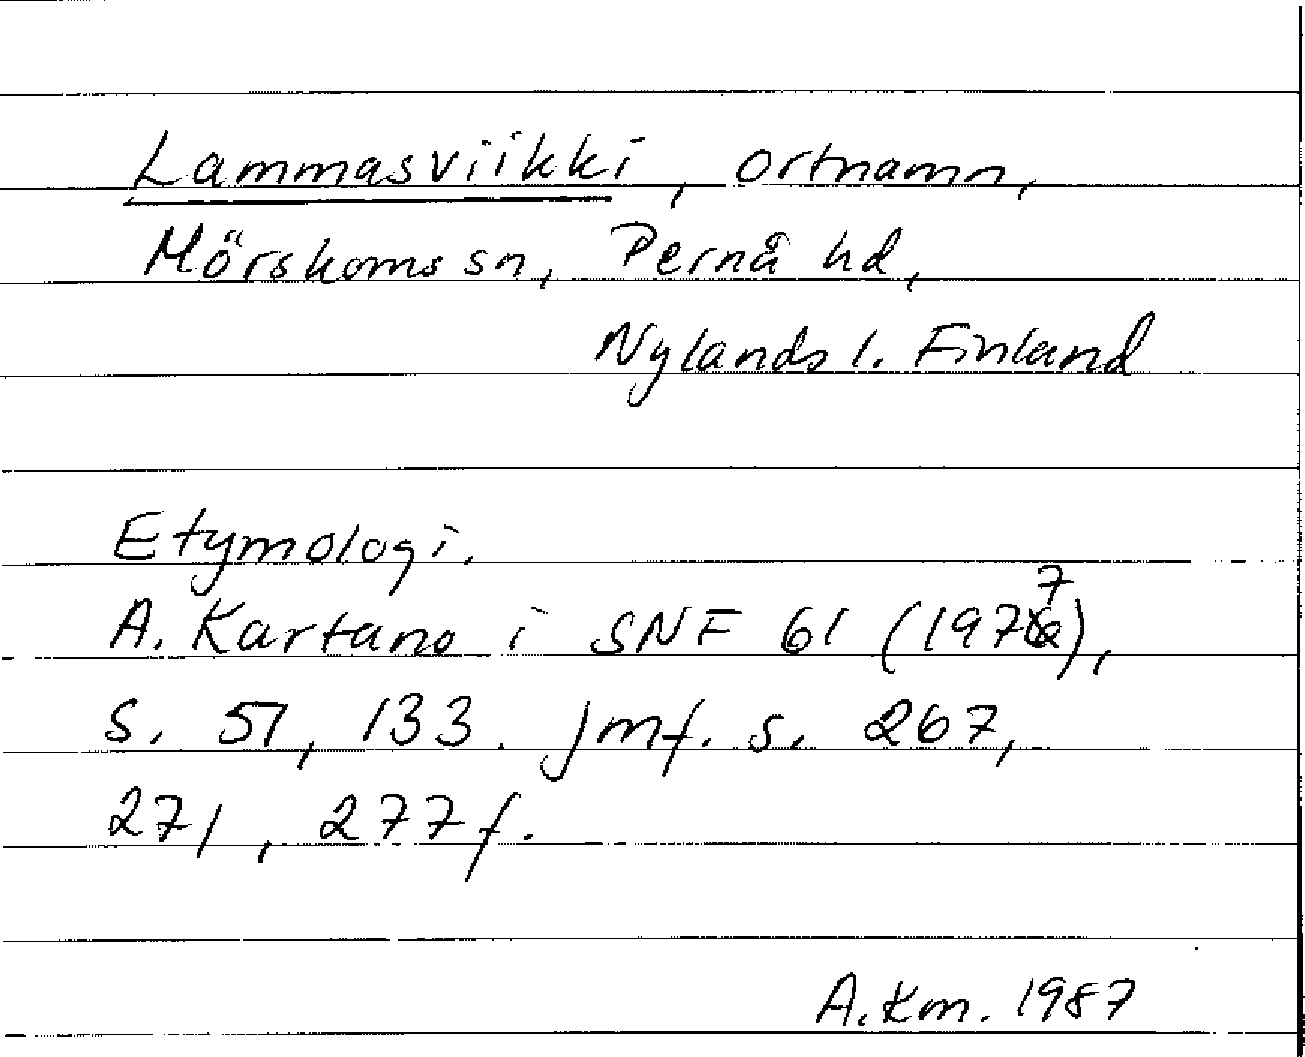 Lammasviikki, ortnamn,
Mörskoms sn, Pernå hd,
Nylands l. Finland
Etymologi.
A. Kartano i SNF 61 (1977),
s. 51, 133. Jmf. s. 267,
271, 277 f.
A. Km. 1987